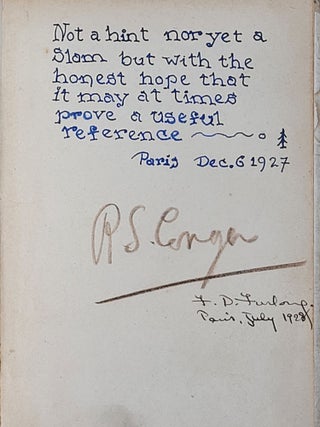 Not a hint nor yet a
Slam but with the
honest hope that
it may at times
prove a useful
reference
Paris Dec. 6 1927
R S. Conger
F. D. Furlong.
Paris, July 1928